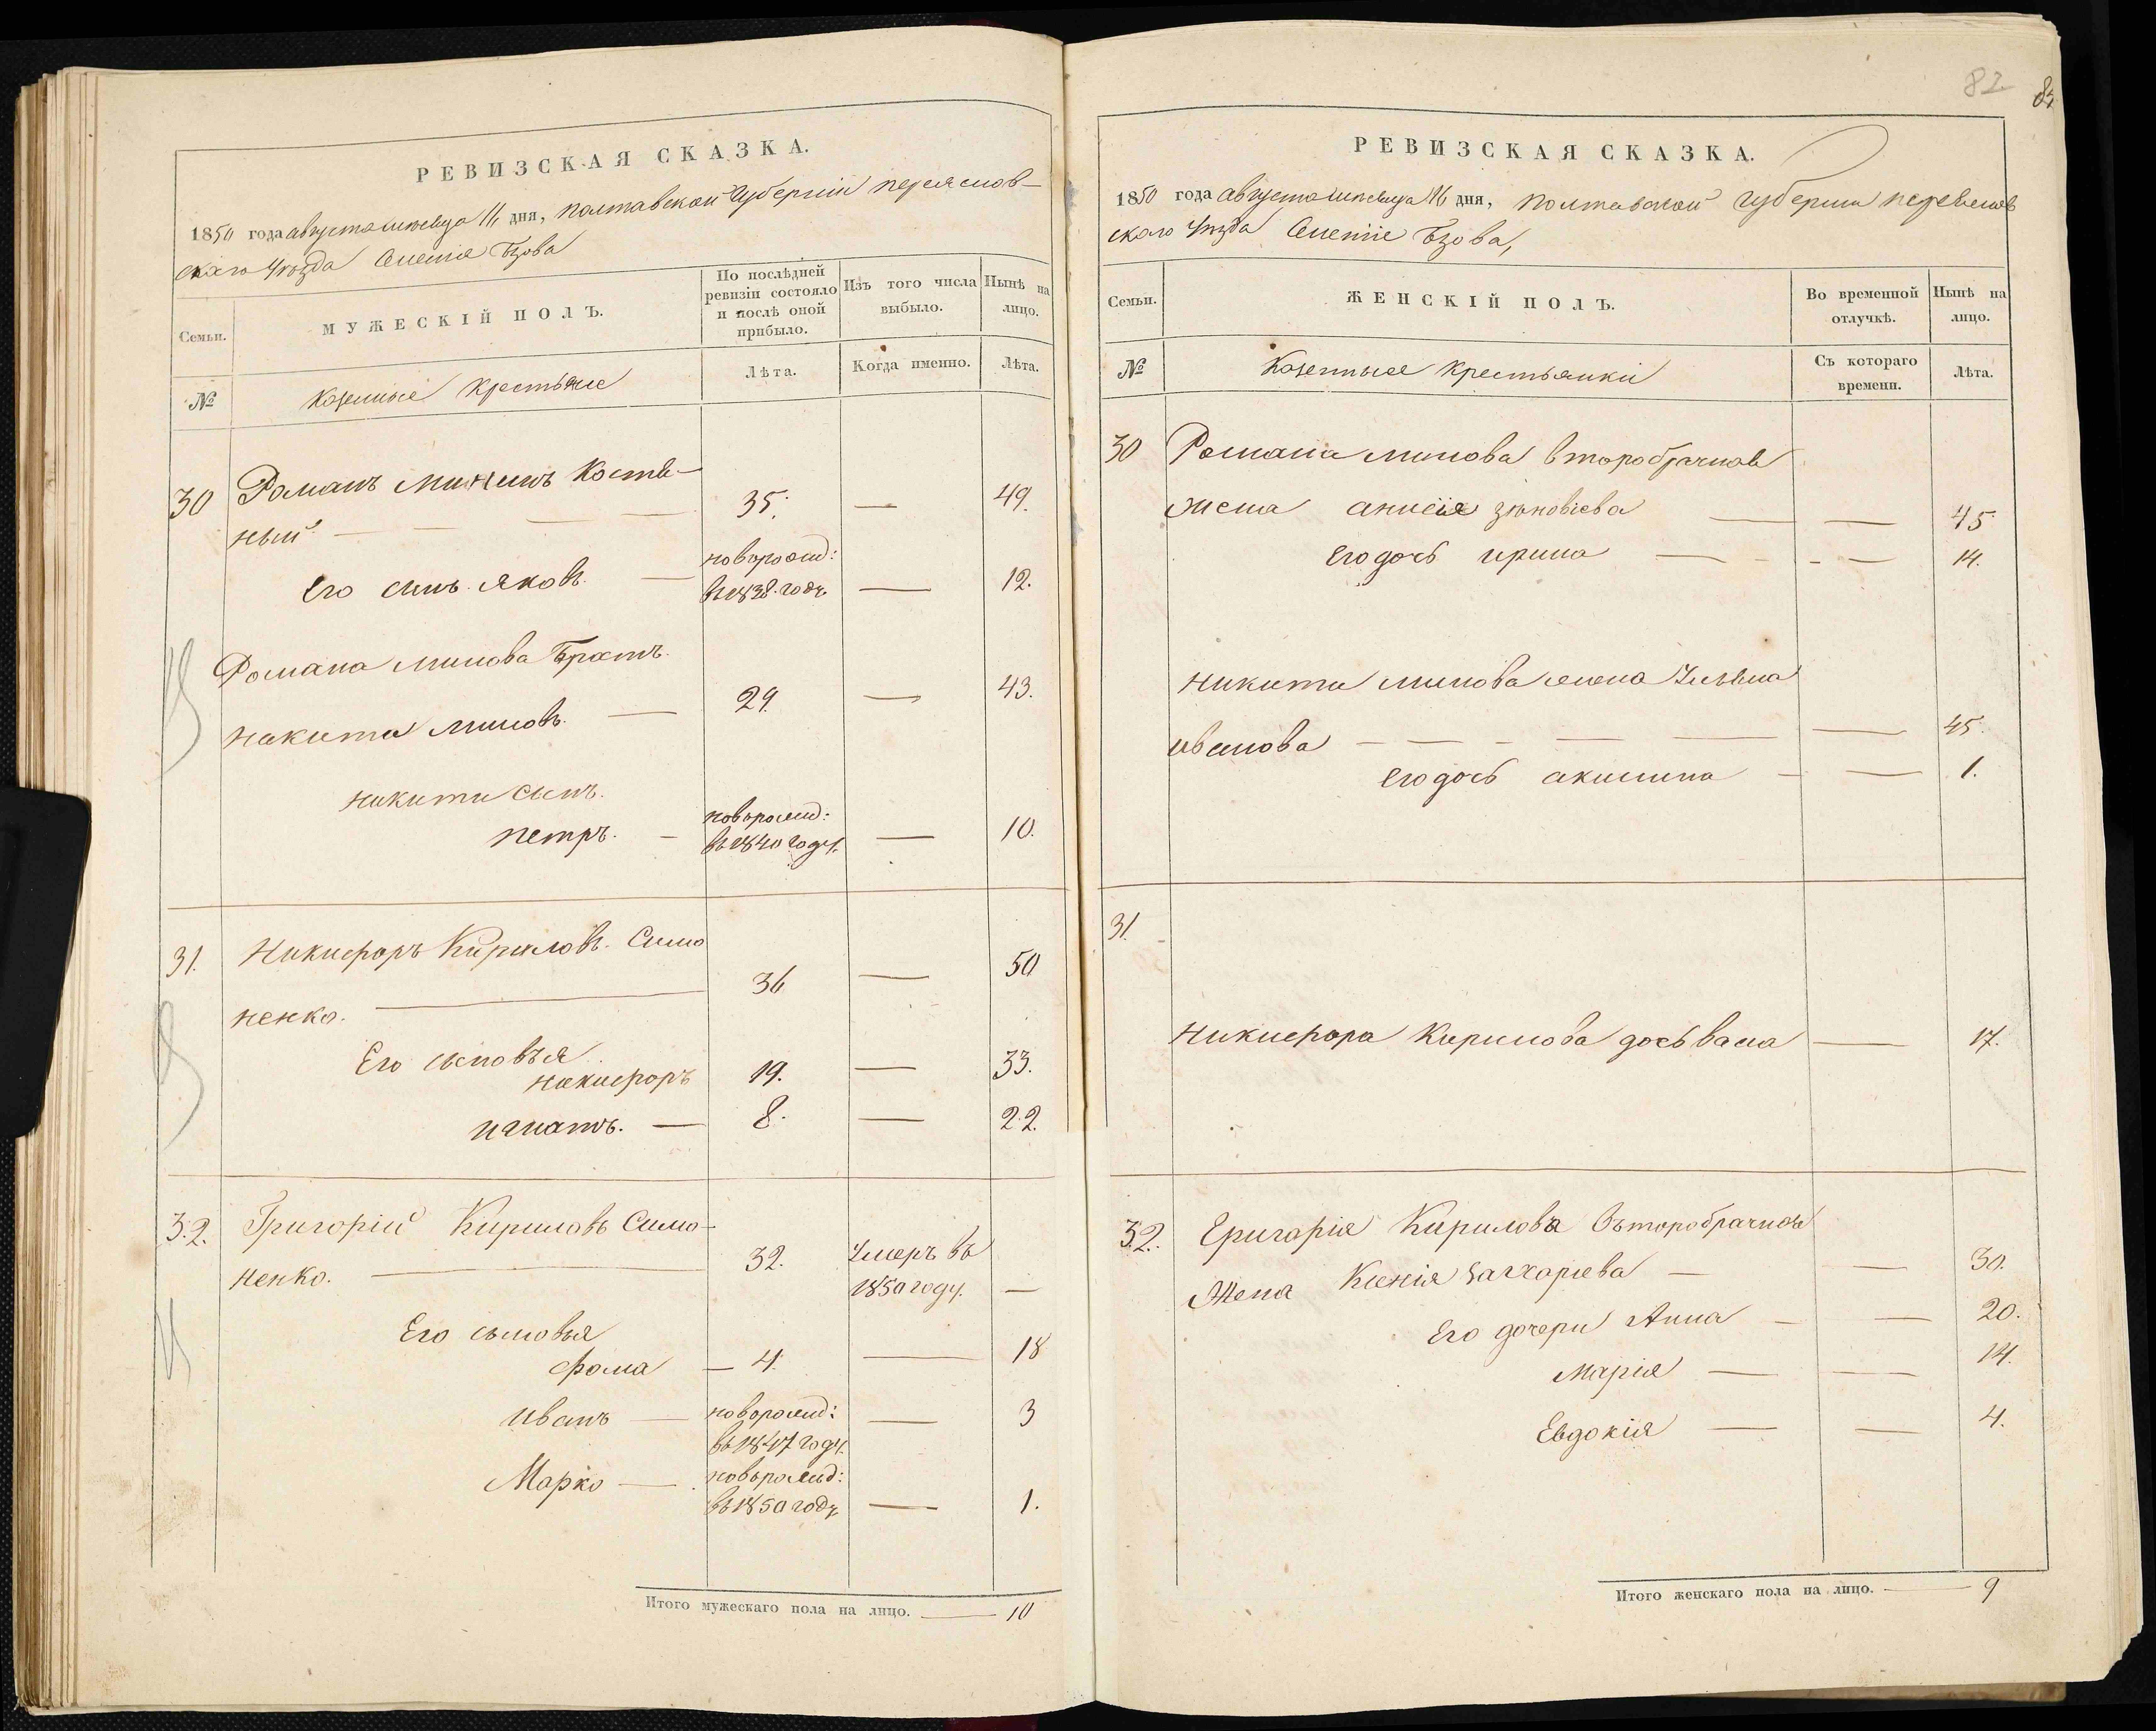 82
РЕВИЗСКАЯ СКАЗКА.
1850 года августа месяца 16 дня, Полтавской Губернии переяслов-
скаго уезда Селение Бзова
Семьи.
МУЖЕСКІЙ ПОЛЪ.
По послѣдней ревизіи состояло и послѣ оной прибыло.
Изъ того числа выбыло.
Нынѣ на лицо.
№
Козенные Крестьяне
Лѣта.
Когда именно.
Лѣта.
30 Романъ Мининъ Коств-
ный — 35. — 49.
Его сынъ Яковъ — новорожд: въ 1838 году — 12.
Романа Минова Братъ
Никита Миновъ — 29. — 43.
Никити сынъ
петръ. — новорожд: въ 1840 году. — 10.
31. Никифоръ Кириловъ Симо
ненко. — 36 — 50
Его сыновья
никифоръ 19. — 33.
игнатъ. — 8. — 22.
32. Григорій Кириловъ Симо-
ненко. — 32. Умеръ въ 1850 году. —
Его сыновья
Фома — 4. — 18
Иванъ — новорожд: въ 1847 году. — 3
Марко — новорожд: въ 1850 году — 1.
Итого мужескаго пола на лицо. — 10
РЕВИЗСКАЯ СКАЗКА.
1850 года августа месяца 16 дня, Полтавской губернии переяслов
скаго уезда Селение Бзова,
Семьи.
ЖЕНСКІЙ ПОЛЪ.
Во временной отлучкѣ.
Нынѣ на лицо.
№
Козенные Крестьянки
Съ котораго времени.
Лѣта.
30 Романа Минова второбрачная
жена анисія зиновіева — — 45
Его дочь ирина — — 14.
Никити Минова жена Ульяна
иванова — — 45.
Его дочь акилина — — 1.
31.
Никифора Кирилова дочь васа — 17.
32. Григорія Кирилова второбрачная
Жена Ксенія Захаріева — — 30.
Его дочери Анна — — 20.
Марія — — 14.
Евдокія — — 4.
Итого женскаго пола на лицо. — 9